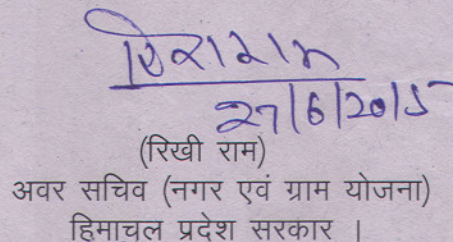 27/6/2015
(रिखी राम)
अवर सचिव (नगर एवं ग्राम योजना)
हिमाचल प्रदेश सरकार ।